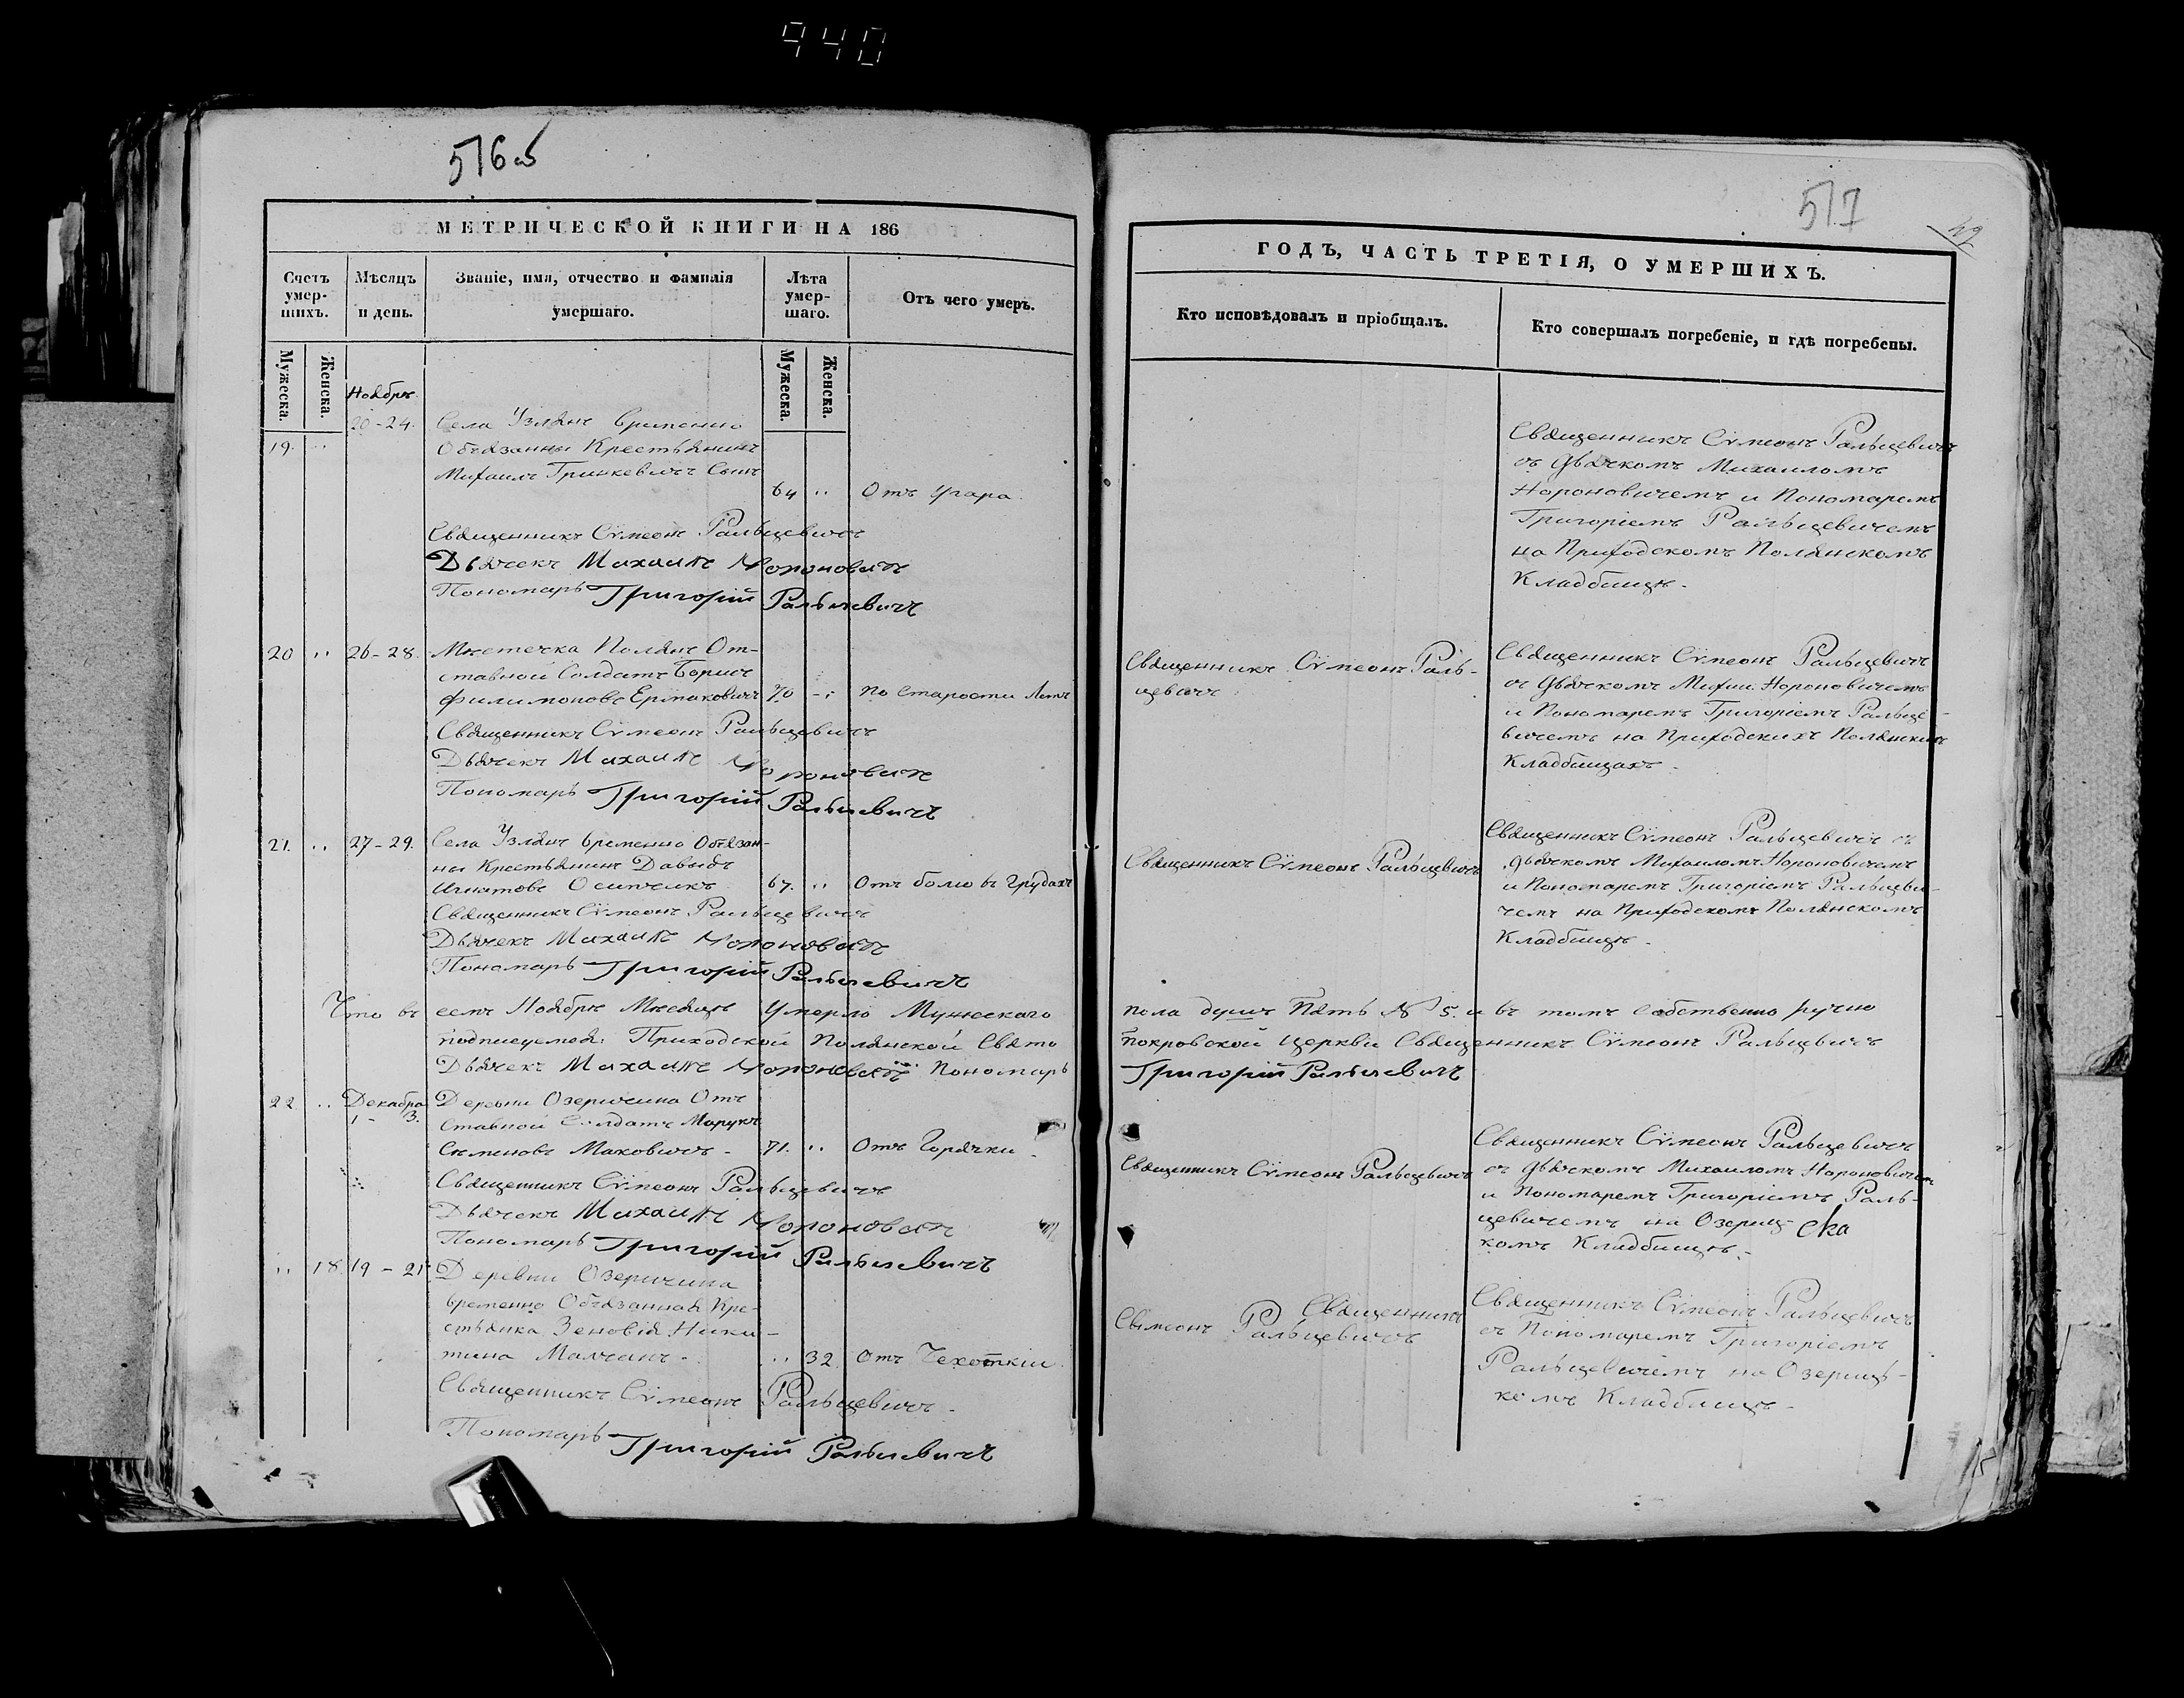 940
516об
517
42
МЕТРИЧЕСКОЙ КНИГИ НА 186
ГОДЪ, ЧАСТЬ ТРЕТІЯ, О УМЕРШИХЪ.
Счетъ умер-шихъ.
Мѣсяцъ и день.
Званіе, имя, отчество и фамилія умершаго.
Лѣта умер-шаго.
Отъ чего умеръ.
Кто исповѣдовалъ и пріобщалъ.
Кто совершалъ погребеніе, и гдѣ погребены.
Мужеска.
Женска.
Мужеска.
Женска.
Ноября
20-24.
19. ..
Села Узлянъ временно
Обязанны Крестьянинъ
Михаилъ Гринкевичъ Сынъ
64 .. Отъ Угара.
Священникъ Сѵмеонъ Ральцевичъ
съ Дьячкомъ Михаиломъ
Нороновичемъ и Пономаремъ
Григоріемъ Ральцевичемъ
на Приходскомъ Полянскомъ
Кладбищѣ.
Священникъ Сѵмеонъ Ральцевичъ
Дьячекъ Михаилъ Нороновичъ
Пономарь Григорій Ральцевичъ
20 .. 26-28.
Мѣстечка Полянъ От-
ставной Солдатъ Борисъ
Филимоновъ Ермаковичъ 70 -.. По Старости Летъ
Священникъ Сѵмеонъ Раль-
цевичъ
Священникъ Сѵмеонъ Ральцевичъ
съ Дьячкомъ Михаи. Нороновичемъ
и Пономаремъ Григоріемъ Ральце-
вичемъ на Приходскихъ Полянскихъ
Кладбищахъ.
Священникъ Сѵмеонъ Ральцевичъ
Дьячекъ Михаилъ Нороновичъ
Пономарь Григорій Ральцевичъ
21. .. 27-29.
Села Узлянъ временно Обязан-
ны Крестьянинъ Давыдъ
Игнатовъ Осипчикъ 67. .. Отъ болю въ Грудахъ
Священникъ Сѵмеонъ Ральцевичъ
Священникъ Сѵмеонъ Ральцевичъ съ
Дьячкомъ Михаиломъ Нороновичемъ
и Пономаремъ Григоріемъ Ральцеви-
чемъ на Приходскомъ Полянскомъ
Кладбищѣ.
Священникъ Сѵмеонъ Ральцевичъ
Дьячекъ Михаилъ Нороновичъ
Пономарь Григорій Ральцевичъ
Что въ семъ Ноябрѣ Мѣсяцѣ Умерло Мужескаго пола душъ Пять № 5. и въ томъ Собственно ручно
подписуемся: Приходской Полянской Свято покровской Церкви Священникъ Сѵмеонъ Ральцевичъ
Дьячекъ Михаилъ Нороновичъ Пономарь Григорій Ральцевичъ
22. .. Декабра
1-3.
Деревни Озеричина От
Ставной Солдатъ Марукъ
Семеновъ Маковичъ. 71. .. Отъ Горячки.
Священникъ Сѵмеонъ Ральцевичъ
Священникъ Сѵмеонъ Ральцевичъ
съ Дьячкомъ Михаиломъ Нороновичем
и Пономаремъ Григоріемъ Раль-
цевичемъ на Озериц- ска
комъ Кладбищѣ.
Священникъ Сѵмеонъ Ральцевичъ
Дьячекъ Михаилъ Нороновичъ
Пономарь Григорій Ральцевичъ
.. 18 19-21
Деревни Озеричина
временно Обязанная Кре-
стьянка Зеновія Ники-
тина Малчанъ. .. 32. Отъ Чехотки.
Священникъ
Сѵмеонъ Ральцевичъ
Священникъ Сѵмеонъ Ральцевичъ
съ Пономаремъ Григоріемъ
Ральцевичемъ на Озериць-
комъ Кладбищѣ.
Священникъ Сѵмеонъ Ральцевичъ.
Пономарь Григорій Ральцевичъ